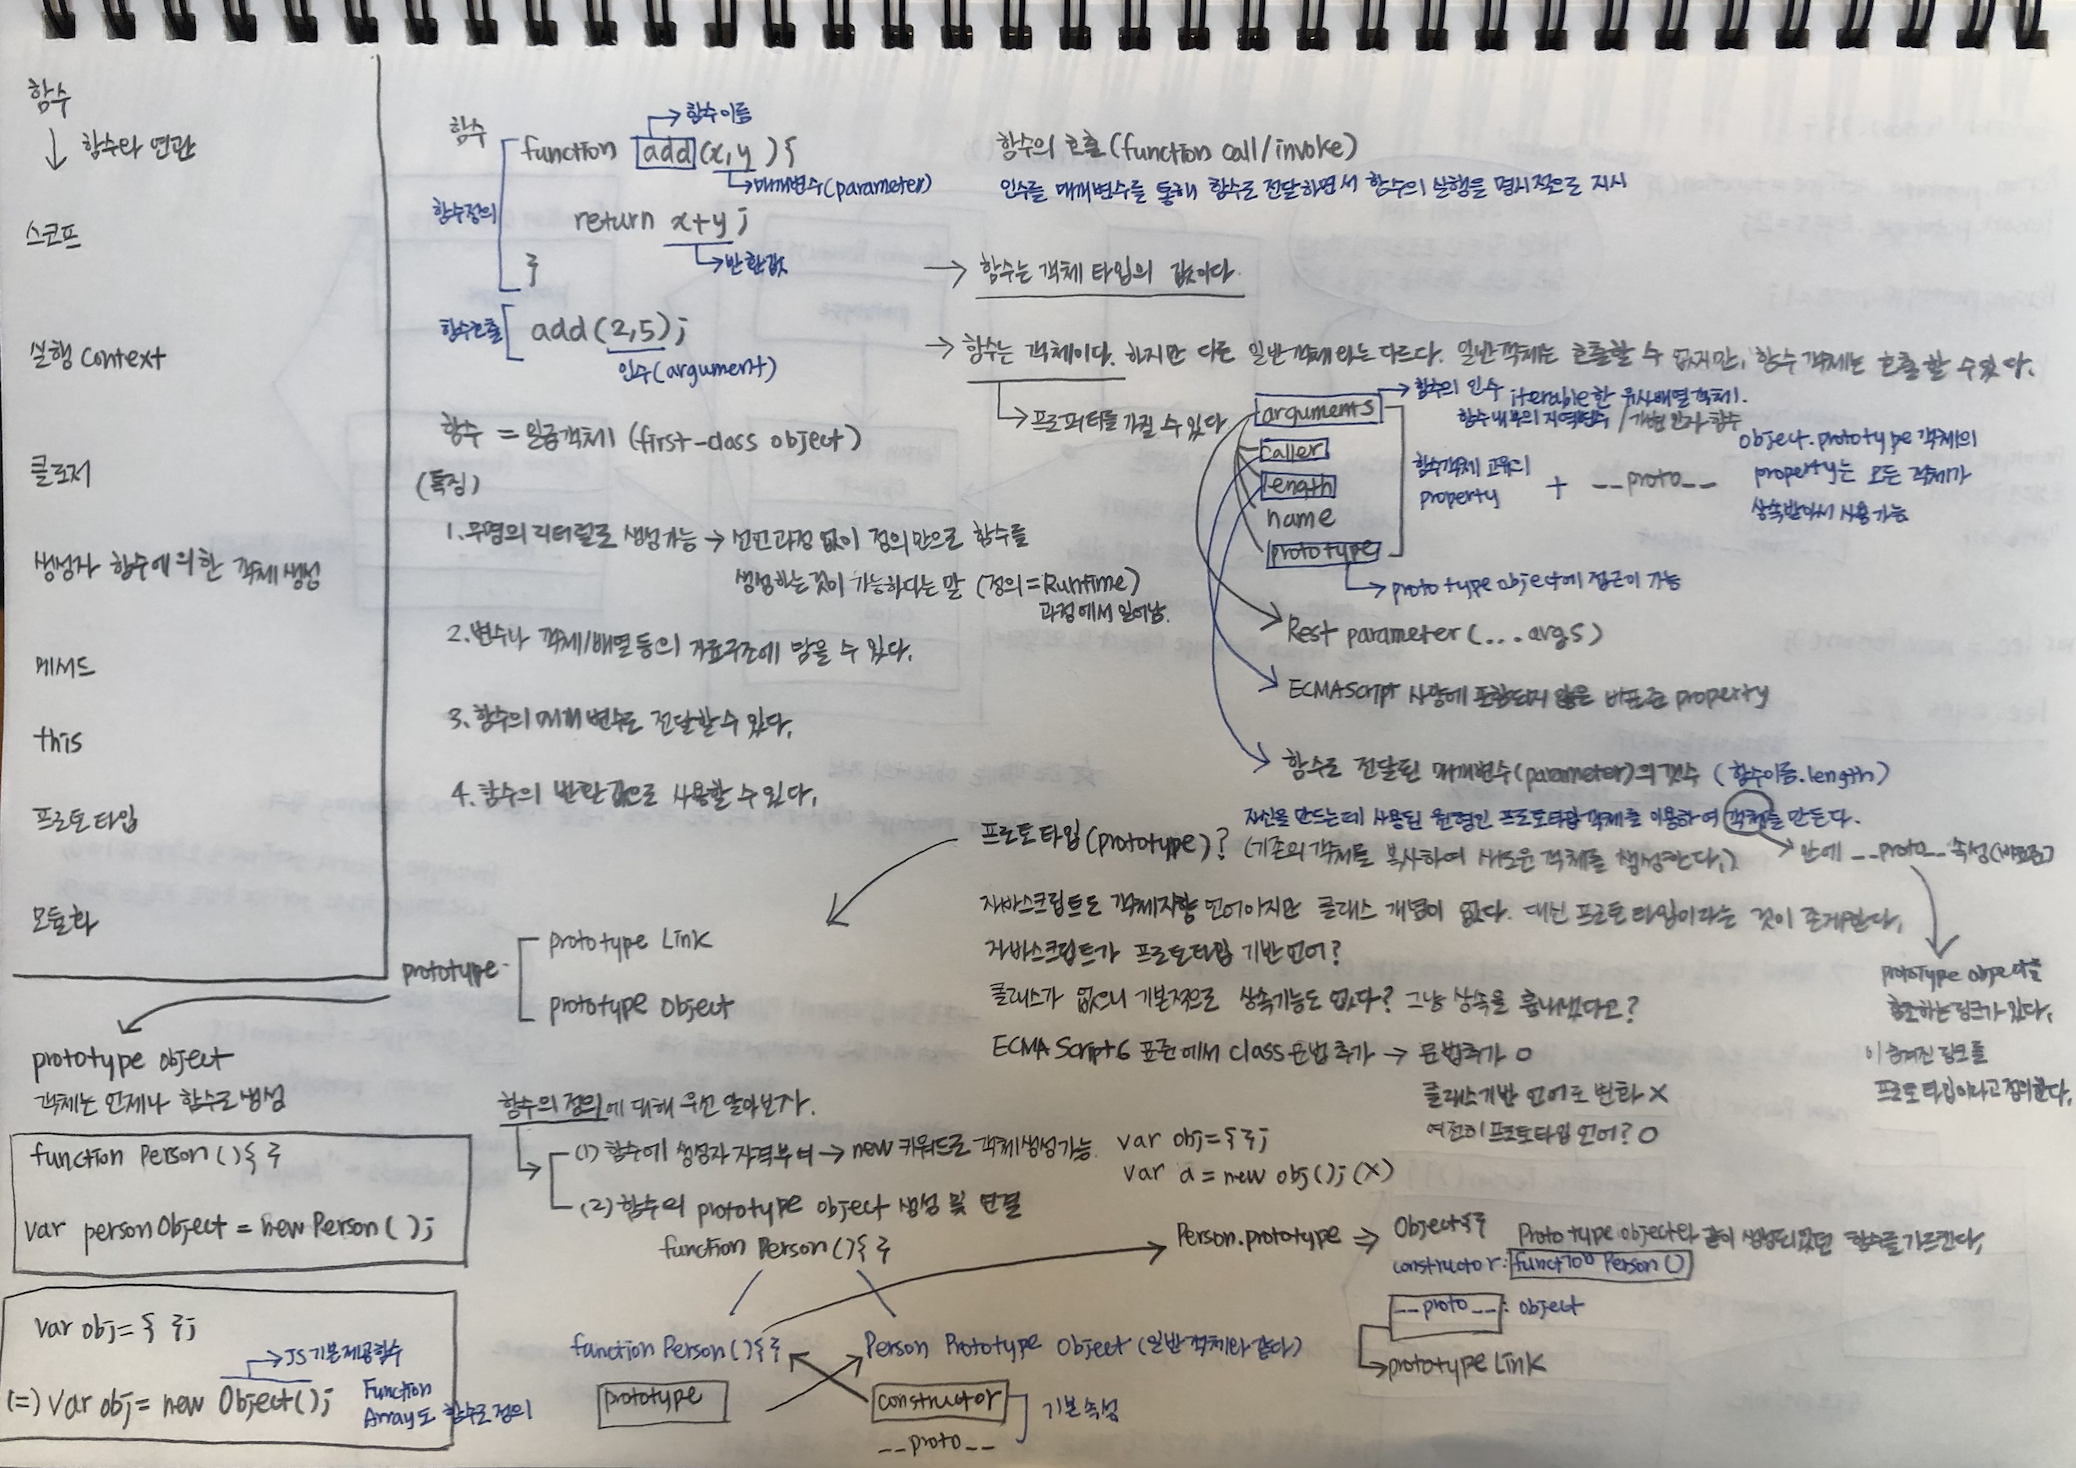 함수
함수와 연관
스코프
실행 Context
클로저
생성자 함수에 의한 객체 생성
메서드
this
프로토타입
모듈화
함수
함수이름
function add (x,y){
매개변수(parameter)
함수정의
return x+y;
반환값
}
함수호출
add(2,5);
인수(argument)
함수 = 일급객체 (first-class object)
(특징)
1. 무명의 리터럴로 생성가능 → 선언과정 없이 정의만으로 함수를
생성하는 것이 가능하다는 말 (정의=Runtime)
과정에서 일어남.
2. 변수나 객체/배열 등의 자료구조에 담을 수 있다.
3. 함수의 매개변수로 전달할 수 있다.
4. 함수의 반환값으로 사용할 수 있다.
함수의 호출(function call/invoke)
인수를 매개변수를 통해 함수로 전달하면서 함수의 실행을 명시적으로 지시
→ 함수는 객체 타입의 값이다.
→ 함수는 객체이다. 하지만 다른 일반객체와는 다르다. 일반객체는 호출할 수 없지만, 함수 객체는 호출 할 수 있다.
프로퍼티를 가질 수 있다
arguments
함수의 인수 iterable한 유사배열 객체.
함수 내부의 지역변수 /
caller
length
name
prototype
함수객체 고유의
property
+ __proto__
object.prototype 객체의
property는 모든 객체가
상속받아서 사용가능
prototype object에 접근이 가능
Rest parameter (...args)
ECMAScript 사양에 포함되지 않은 비표준 property
함수로 전달된 매개변수(parameter)의 갯수 (함수이름.length)
자신을 만드는데 사용된 원형인 프로토타입 객체를 이용하여 객체를 만든다.
프로토타입(prototype)? (기존의 객체를 복사하여 새로운 객체를 생성한다.)
안에 __proto__ 속성(비표준)
자바스크립트도 객체지향 언어이지만 클래스 개념이 없다. 대신 프로토타입이라는 것이 존재한다.
자바스크립트가 프로토타입 기반 언어?
클래스가 없으니 기본적으로 상속기능도 없다? 그냥 상속을 흉내냈다고?
ECMA Script6 표준에서 class 문법 추가 → 문법추가 O
클래스기반 언어로 변화 X
여전히 프로토타입 언어? O
prototype object를
참조하는 링크가 있다.
이 숨겨진 링크를
프로토타입이라고 정의한다.
prototype
prototype Link
prototype object
prototype object
객체는 언제나 함수로 생성
function Person(){ }
var personObject = new Person( );
var obj= { };
JS기본제공함수
(=) var obj= new Object();
Function
Array도 함수로 정의
함수의 정의에 대해 우선 알아보자.
(1) 함수에 생성자 자격부여 → new 키워드로 객체생성가능
(2) 함수의 prototype object 생성 및 연결
var obj={ };
var a = new obj(); (X)
function Person(){ }
function Person(){ }
prototype
Person Prototype Object (일반 객체와 같다)
constructor
기본 속성
__proto__
Person.prototype ⇒ Object{ }
Prototype object와 같이 생성되었던 함수를 가르킨다.
constructor: function Person()
__proto__: object
prototype Link